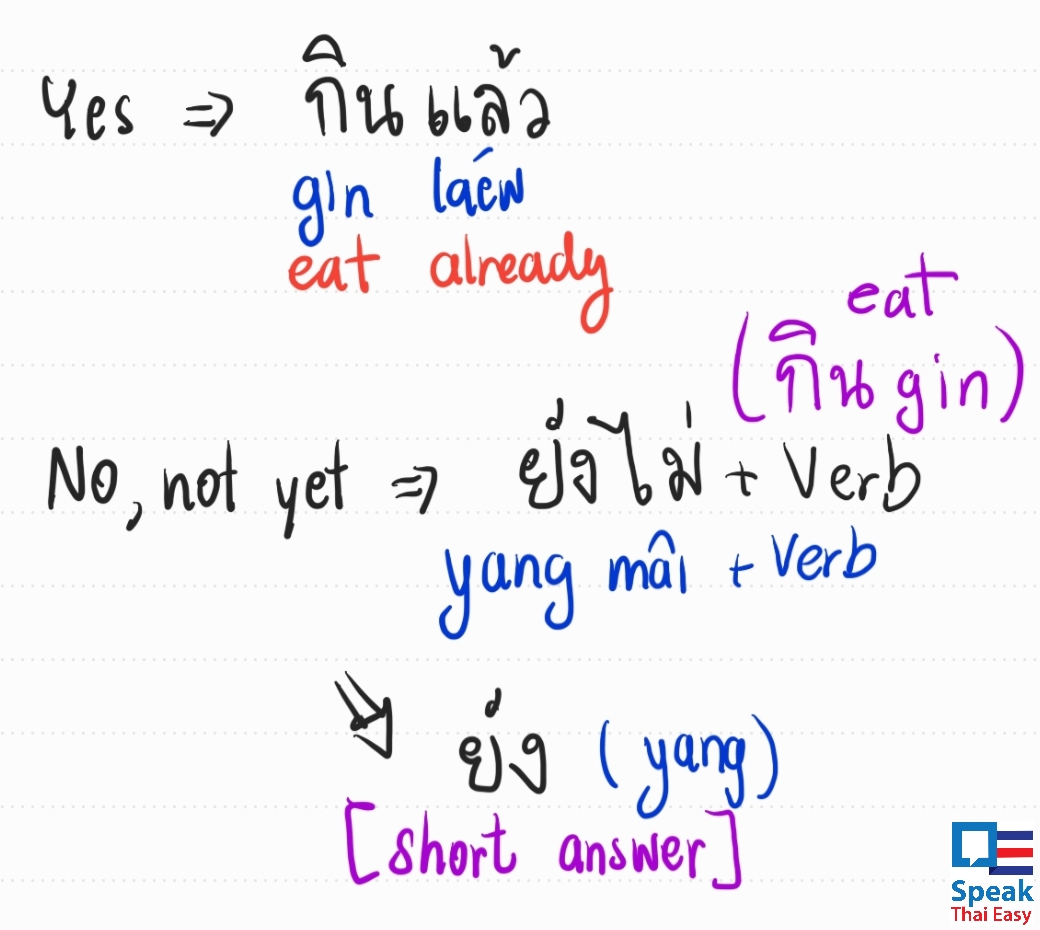 Yes => กินแล้ว
gin laéw
eat already
eat
(กิน gin)
No, not yet => ยังไม่ + Verb
yang mâi + Verb
ยัง (yang)
[short answer]
Speak
Thai Easy